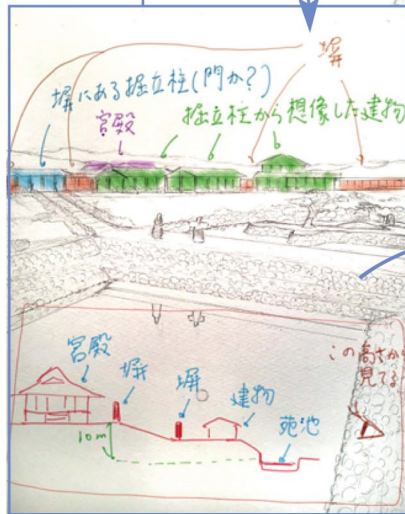 塀
塀にある掘立柱(門か?)
宮殿
掘立柱から想像した建物
宮殿
塀
塀
建物
苑池
10m
この高さから
見てる